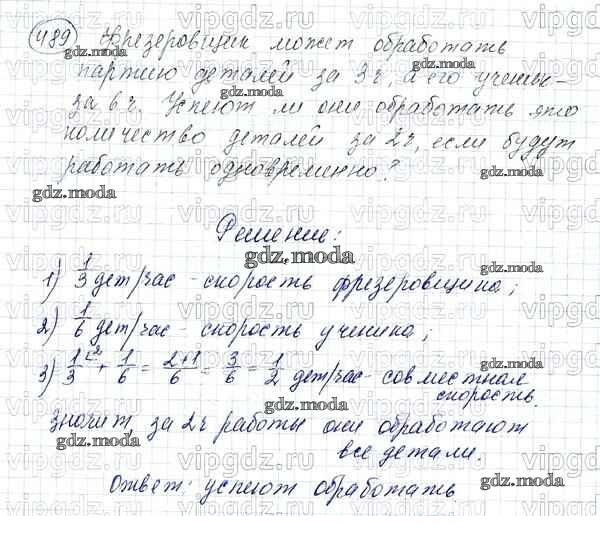 489 Фрезеровщик может обработать
партию деталей за 3ч, а его ученик -
за 6 ч. Успеют ли они обработать это
количество деталей за 2ч, если будут
работать одновременно?
Решение:
1) 1/3 дет/час - скорость фрезеровщика;
2) 1/6 дет/час - скорость ученика;
3) 1/3 + 1/6 = 2+1/6 = 3/6 = 1/2 дет/час - совместная
скорость.
значит, за 2ч работы они обработают
все детали.
Ответ: успеют обработать